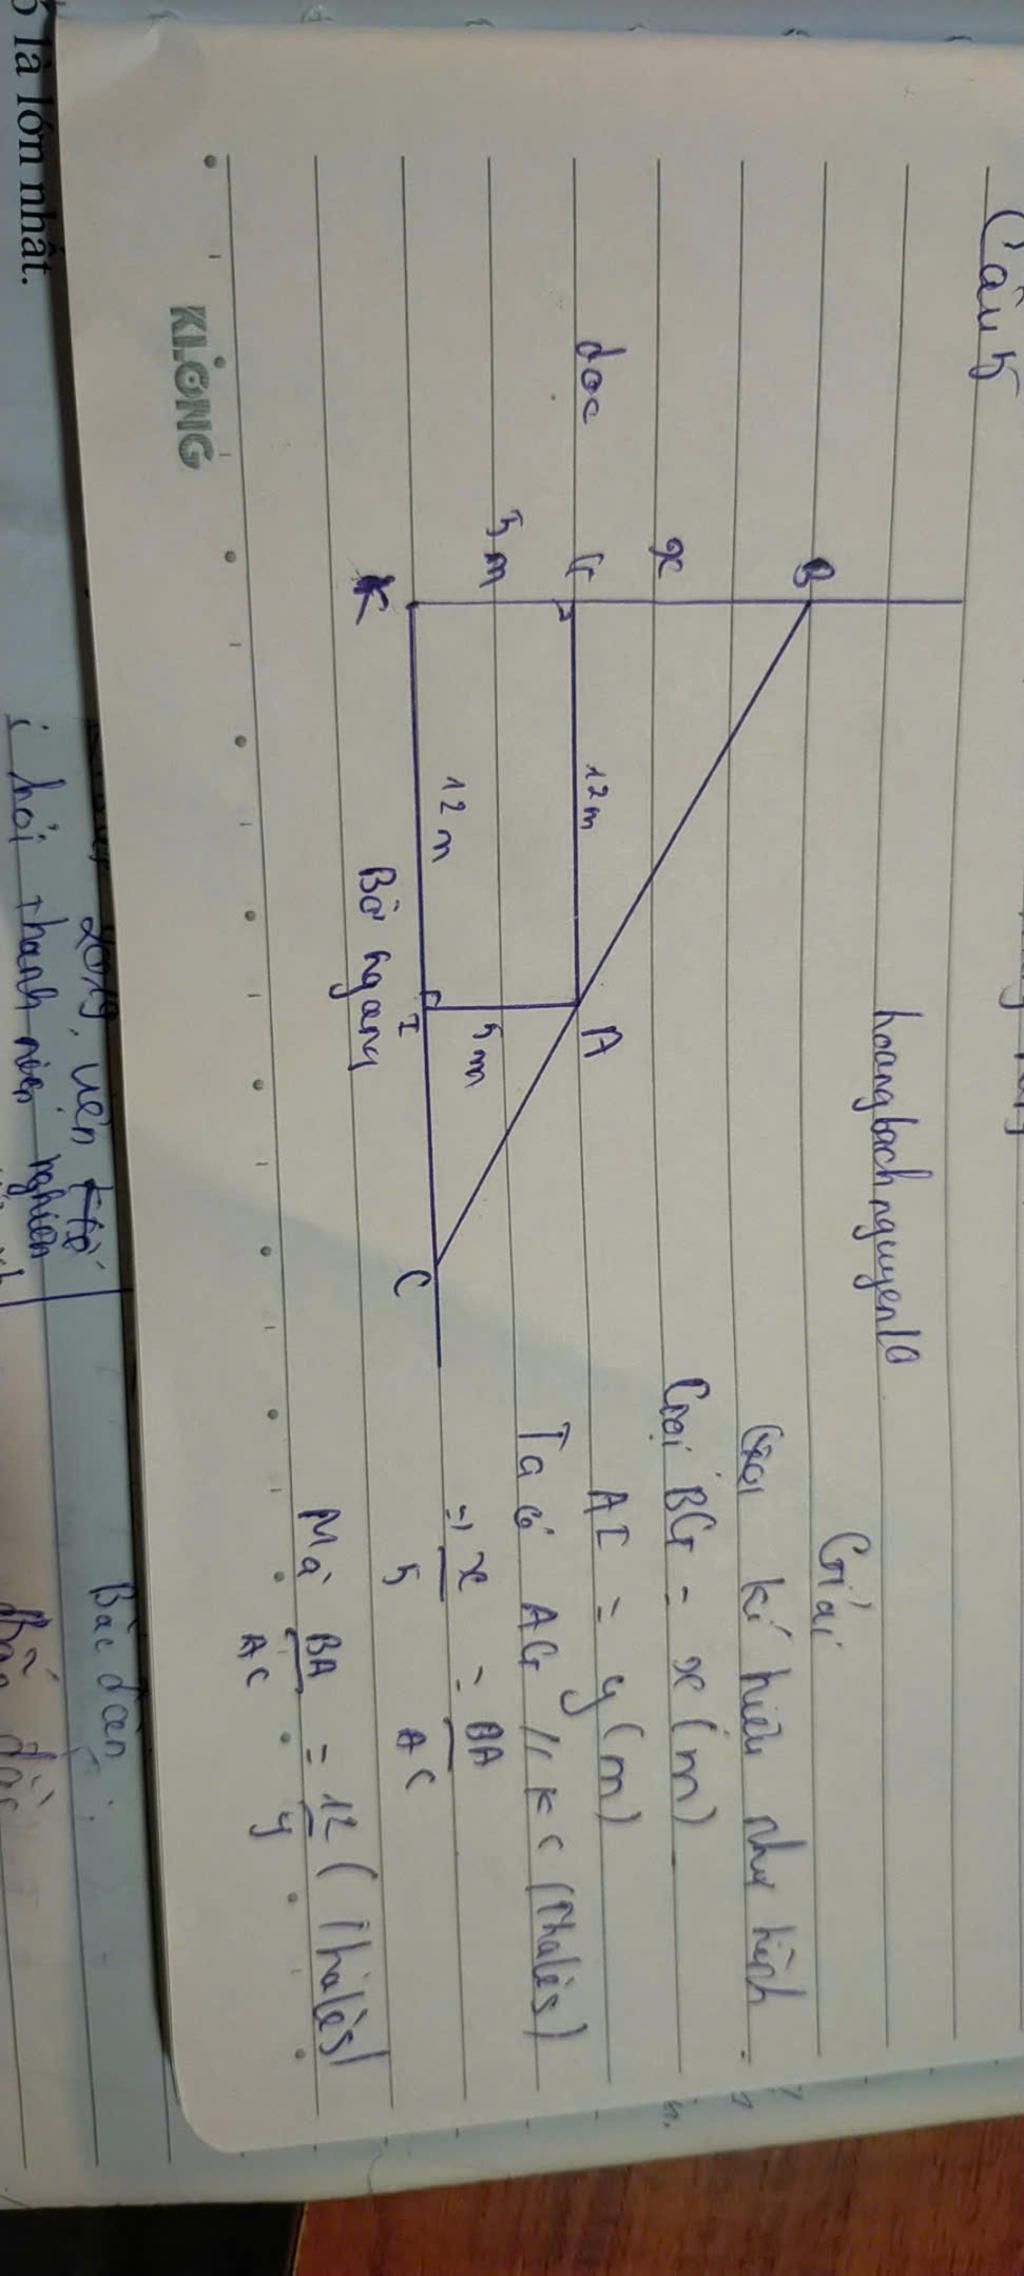 Câu 5
hoangbachnguyen10
Giải
Gọi kí hiệu như hình
Gọi BG = x (m)
AI = y (m)
Ta có AG // KC (Thalès)
=> x/5 = BA/AC
Mà BA/AC = 12/y (Thalès)
B
x
dọc
G
12m
A
5m
5m
K
12m
I
C
Bờ ngang
KLONG
ó là lớn nhất.
2019, uên
hội thanh niên nghiên
Bắc đàn